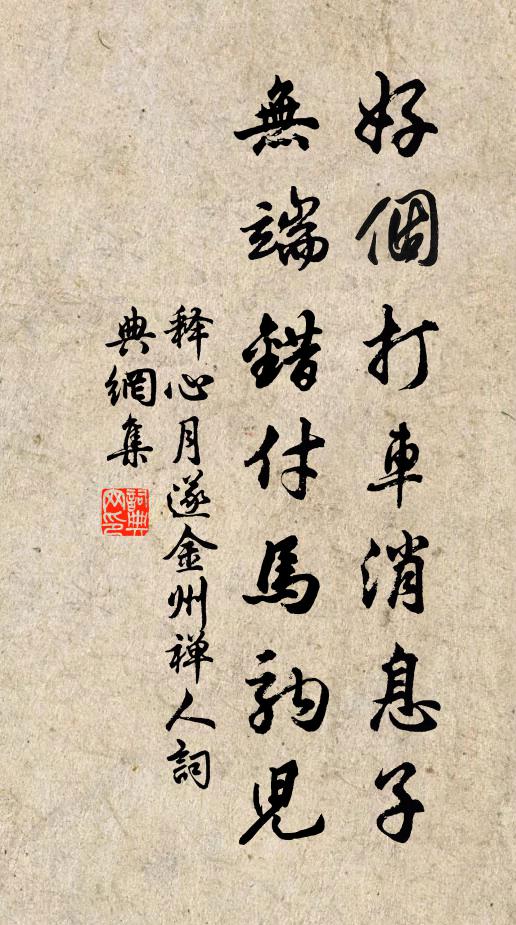 好個打車消息子
無端錯付馬駒兒
释心月遂金州禅人詞
典網集
詞典
网印